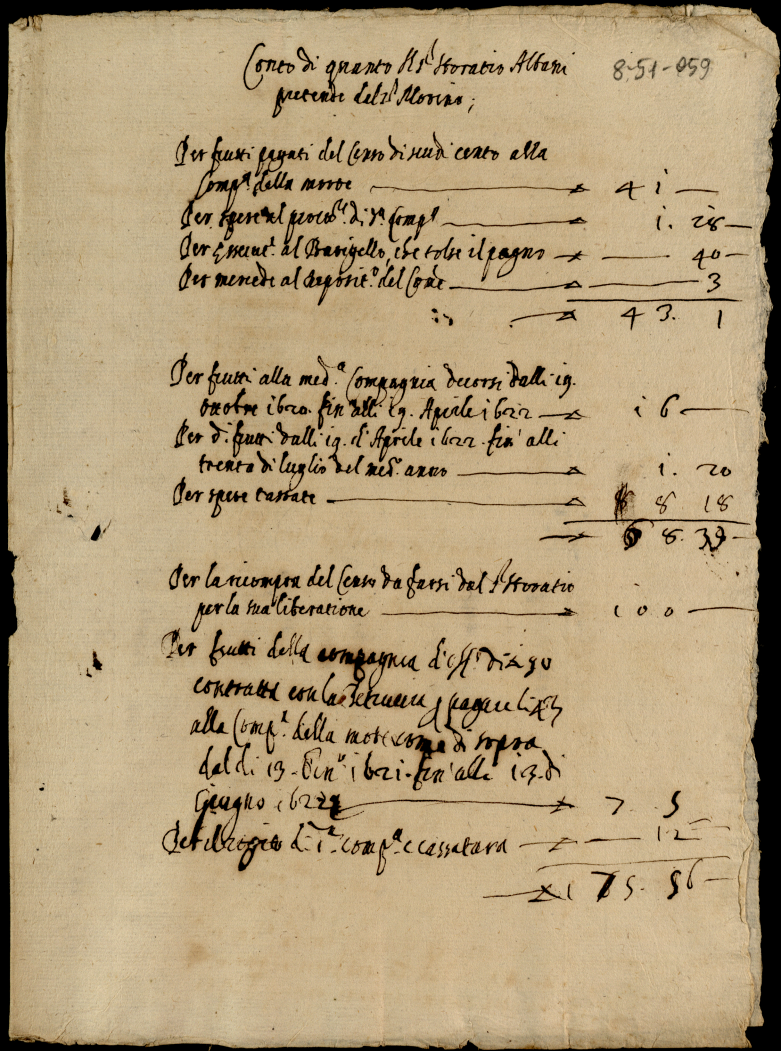 Conto di quanto il s.r Horatio Albani
8-51-059
pretende dal s.r Morino;
Per frutti pagati del Censo di scudi cento alla
Comp.a della morte 41 —
Per spese al proc.re di d.a Comp.a 1. 28 —
Per essecut.e al Barigello, che tolse il pegno — 40 —
Per mercede al deposit.o del — 3
43. 1
Per frutti alla med.a Compagnia decorsi dalli 19.
ottobre 1620. fin'alli 19. Aprile 1622 16 —
Per d.i frutti dalli 19. d'Aprile 1622. fin' alli
trenta di luglio del med.o anno 1. 20
Per spese tassate 8 18
68. 39 —
Per la ricompra del Censo da farsi dal s.r Horatio
per la sua liberatione 100 —
Per frutti della compagnia d'off.o di 50
contratta con la per pagare li 43
alla Comp.a della morte come di sopra
dal di 13. Gen.o 1621. fin'alli 13. di
Giugno 1622 7 5
Per il d.a comp.a e cassatura — 12 —
175. 56 —